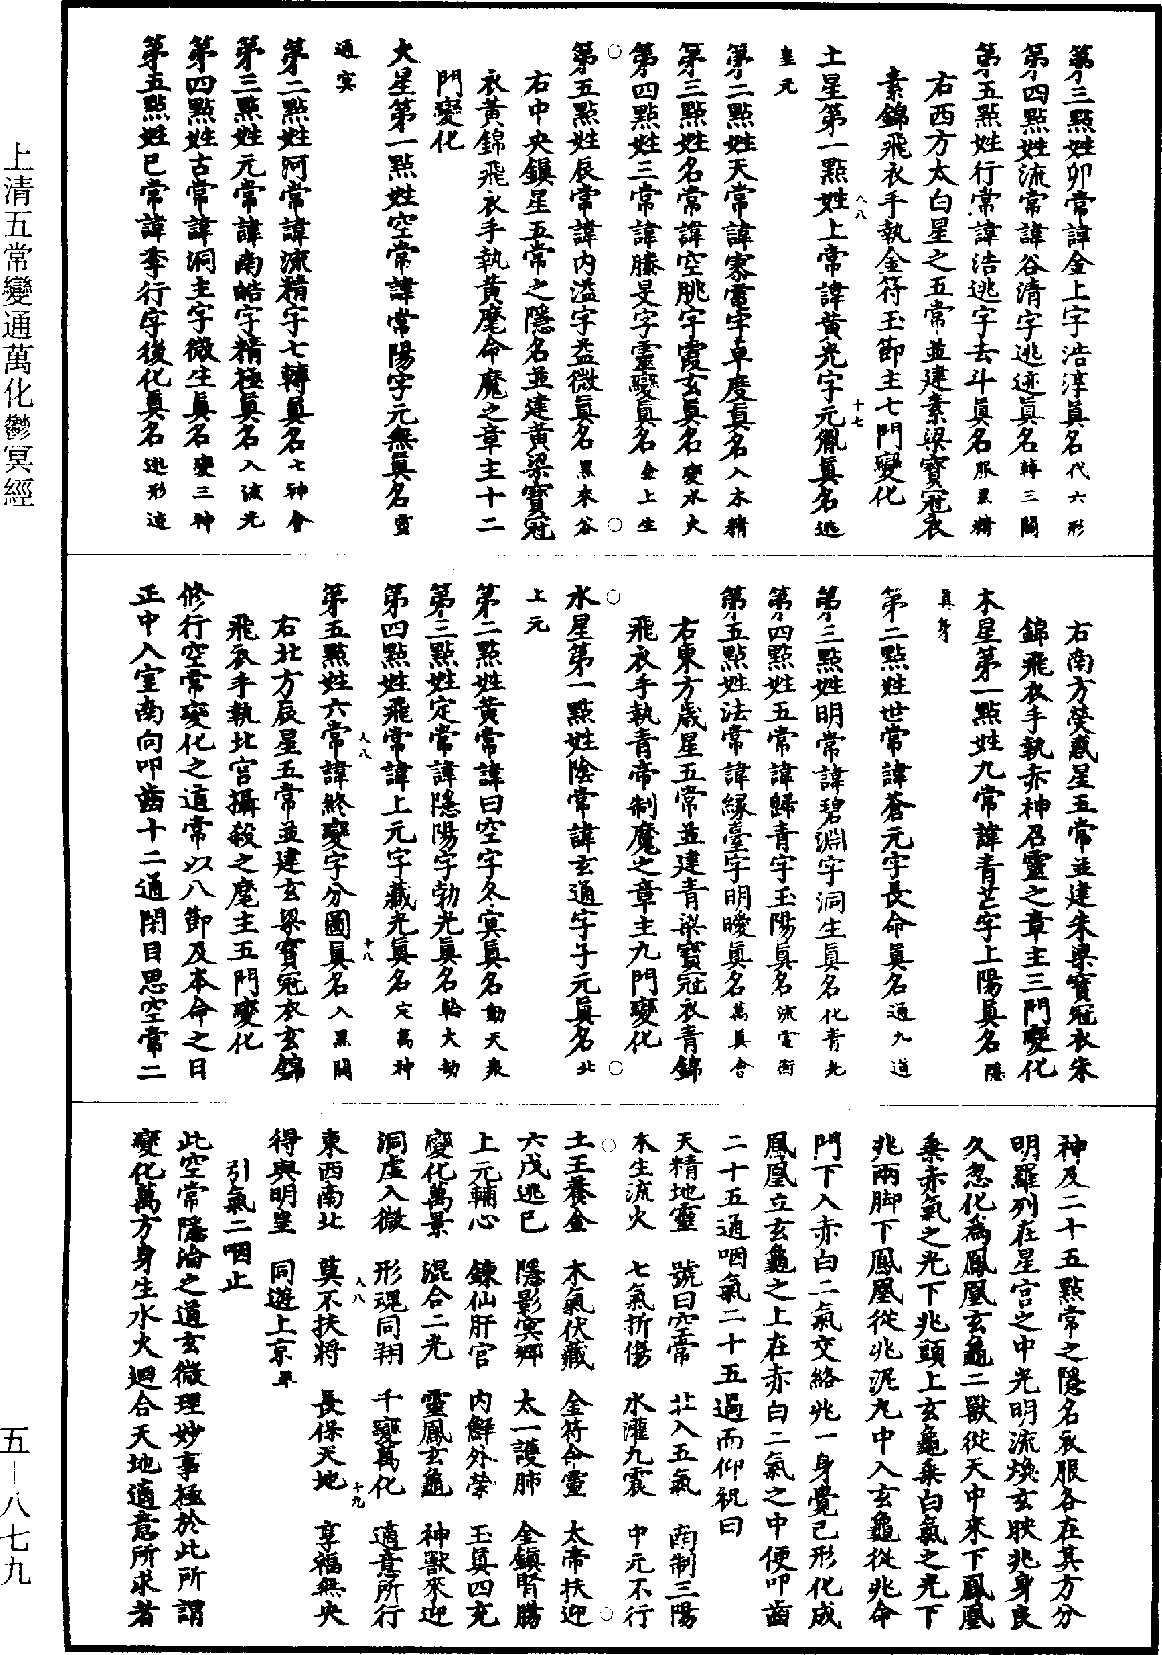 上清五常變通萬化鬱冥經
五—八七九
第三點姓卯常諱金上字浩淳眞名代六形
第四點姓流常諱谷清字逃迹眞名轉三關
第五點姓行常諱浩逃字去斗眞名服黑精
右西方太白星之五常並建素梁寶冠衣
素錦飛衣手執金符玉節主七門變化
八八
十七
土星第一點姓上常諱黃光字元胤眞名逃
皇元
第二點姓天常諱寨電字卓度眞名入木精
第三點姓名常諱空朓字霞玄眞名變水火
第四點姓三常諱滕旻字靈變眞名金上生
第五點姓辰常諱内溢字益微眞名黑來谷
右中央鎮星五常之隱名並建黃梁寶冠
衣黃錦飛衣手執黃麾命魔之章主十二
門變化
火星第一點姓空常諱常陽字元無眞名靈
通冥
第二點姓阿常諱流精字七轉眞名七神會
第三點姓元常諱南皓字精極眞名入流光
第四點姓古常諱洞主字微生眞名變三神
第五點姓巳常諱李行字後化眞名逃形遠
右南方熒惑星五常並建朱梁寶冠衣朱
錦飛衣手執赤神召靈之章主三門變化
木星第一點姓九常諱青芒字上陽眞名隱
眞身
第二點姓世常諱蒼元字長命眞名通九道
第三點姓明常諱碧淵字洞生眞名化青光
第四點姓五常諱歸青字玉陽眞名流電衝
第五點姓法常諱緣臺字明曖眞名萬眞會
右東方歲星五常並建青梁寶冠衣青錦
飛衣手執青帝制魔之章主九門變化
水星第一點姓陰常諱玄通字子元眞名北
上元
第二點姓黃常諱曰空字冬冥眞名動天衆
第三點姓定常諱隱陽字勃光眞名輪大劫
第四點姓飛常諱上元字藏光眞名定萬神
八八
十八
第五點姓六常諱終變字分圖眞名入黑關
右北方辰星五常並建玄梁寶冠衣玄錦
飛衣手執北宮攝殺之麾主五門變化
修行空常變化之道常以八節及本命之日
正中入室南向叩齒十二通閉目思空常二
神及二十五點常之隱名衣服各在其方分
明羅列在星宮之中光明流煥玄映兆身良
久忽化爲鳳凰玄龜二獸從天中來下鳳凰
乘赤氣之光下兆頭上玄龜乘白氣之光下
兆兩脚下鳳凰從兆泥丸中入玄龜從兆命
門下入赤白二氣交絡兆一身覺己形化成
鳳凰立玄龜之上在赤白二氣之中便叩齒
二十五通咽氣二十五過而仰祝曰
天精地靈　號曰空常　北入五氣　南制三陽
木生流火　七氣折傷　水灌九震　中元不行
土王養金　木氣伏藏　金符命靈　太帝扶迎
六戊逃巳　隱影冥鄉　太一護肺　金鎮腎腸
上元輔心　鍊仙肝宮　内鮮外榮　玉眞四充
變化萬景　混合二光　靈鳳玄龜　神獸來迎
洞虛入微　形魂同翔　千變萬化　適意所行
八八
十九
東西南北　莫不扶將　長保天地　享福無央
得與明皇　同遊上京畢
引氣二咽止
此空常隱淪之道玄微理妙事極於此所謂
變化萬方身生水火迴合天地適意所求者